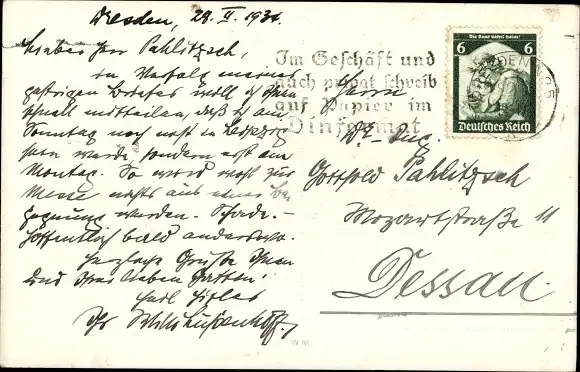 Dresden, 28. II. 193
Lieber Herr Pahlitzsch,
in Verfolg meines
gestrigen Briefes will ich Ihnen
schnell mitteilen, daß ich am
Sonntag noch nicht in Leipzig
sein werde, sondern erst am
Montag. So wird wohl zur
Messe nichts aus einer Be-
gegnung werden. Schade. -
Hoffentlich bald anderswo.
Herzliche Grüße Ihnen
und Ihrer lieben Gattin!
Ihr
Im Geschäft und
auch privat schreib
auf Papier im
Dinformat
6 6
Deutsches Reich
Herrn
Dr.-Ing.
Gotthold Pahlitzsch
Mozartstraße 11
Dessau.